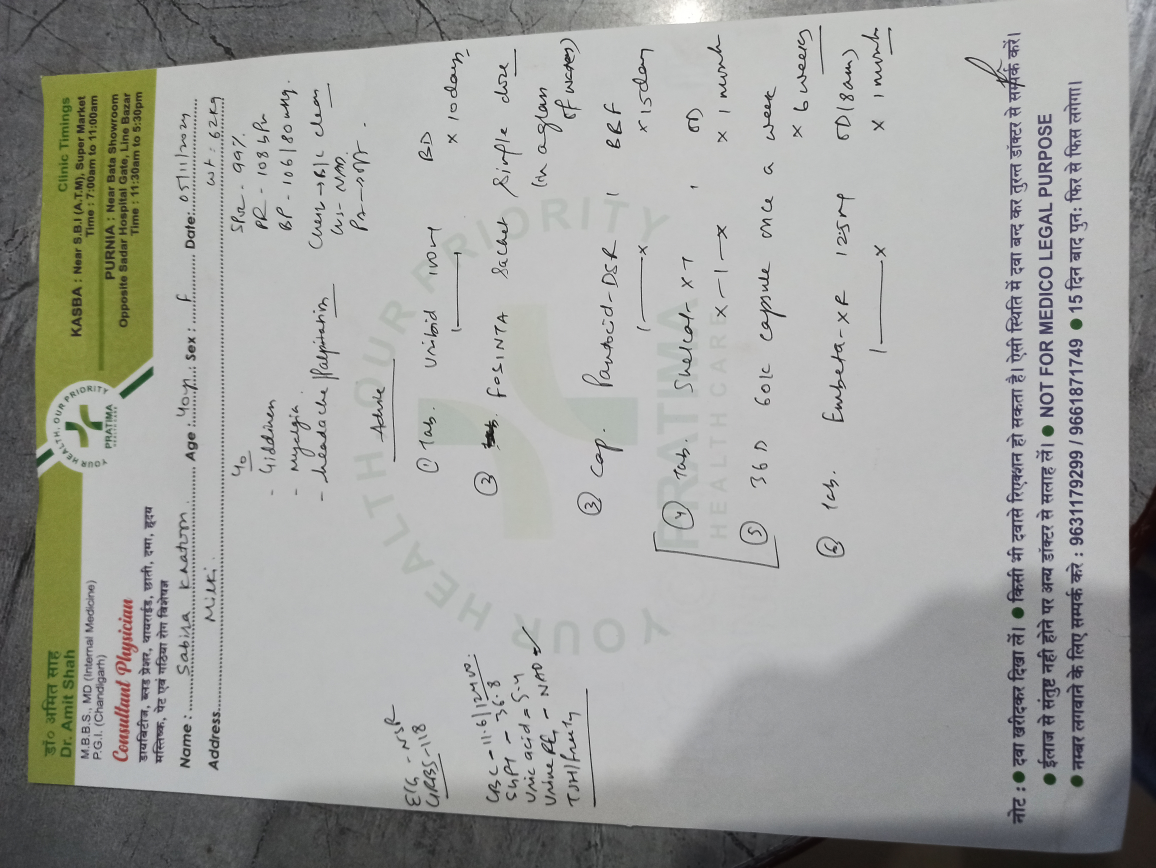 डॉ० अमित साह
Dr. Amit Shah
M.B.B.S., MD (Internal Medicine)
P.G.I. (Chandigarh)
Consultant Physician
डायबिटीज, ब्लड प्रेशर, थायराईड, छाती, दमा, हृदय
मस्तिष्क, पेट एवं गठिया रोग विशेषज्ञ
YOUR HEALTH, OUR PRIORITY
PRATIMA
Clinic Timings
KASBA : Near S.B.I (A.T.M), Super Market
Time : 7:00am to 11:00am
PURNIA : Near Bata Showroom
Opposite Sadar Hospital Gate, Line Bazar
Time : 11:30am to 5:30pm
Name : Sabira Khatoon Age : 40 yr Sex : F Date: 05/11/2024
Address Milki wt: 62kg
SPO2 - 99%
PR - 108 bpm
BP - 106/80 mmhg
Chest → B/L clear
CVS - NAD
P/A → soft
c/o
- Giddiness
- Myalgia
- headache / Palpitation
Advice
ECG - NSR
GRBS - 118
CBC - 11.6/12400
SGPT - 36.8
Uric acid = 5.4
Urine R/E - NAD ✓
① Tab. BD
1——1 x 10 days
② FOSINTA Sachet Single dose
(in a glass
of water)
③ Cap. Pantocid-DSR 1 BBF
1——x x 15 day
④ Tab. Shelcal-XT 1 OD
x-1-x x 1 month
⑤ 36D 60K capsule once a week
x 6 weeks
⑥ Tab. Embeta-XR 12.5mg OD (8am)
1——x x 1 month
YOUR HEALTH OUR PRIORITY
PRATIMA
HEALTHCARE
नोट : ● दवा खरीदकर दिखा लें। ● किसी भी दवासे रिएक्शन हो सकता है। ऐसी स्थिति में दवा बन्द कर तुरन्त डॉक्टर से सम्पर्क करें।
● ईलाज से संतुष्ट नही होने पर अन्य डॉक्टर से सलाह लें। ● NOT FOR MEDICO LEGAL PURPOSE
● नम्बर लगवाने के लिए सम्पर्क करे : 9631179299 / 9661871749 ● 15 दिन बाद पुनः फिर से फिस लगेगा।